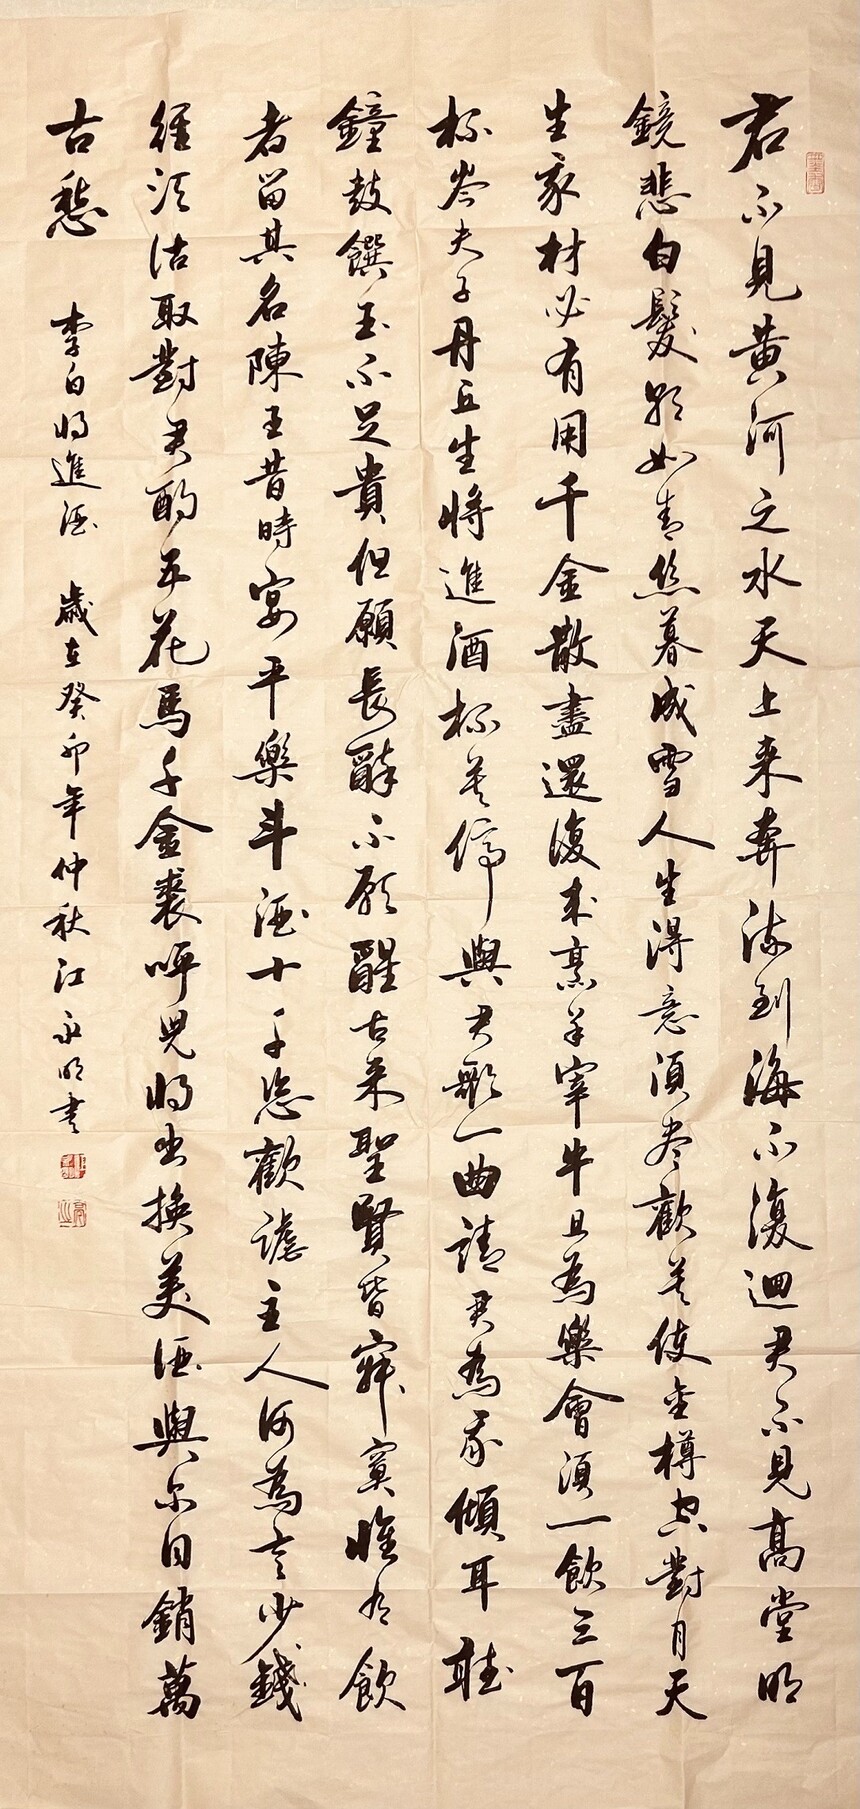 君不見黄河之水天上来奔流到海不復迴君不見高堂明
鏡悲白髮朝如青絲暮成雪人生得意須尽歡莫使金樽空對月天
生我材必有用千金散盡還復来烹羊宰牛且為樂會須一飲三百
杯岑夫子丹丘生将進酒杯莫停與君歌一曲請君為我傾耳聴
鐘鼓饌玉不足貴但願長醉不願醒古来聖賢皆寂寞惟有飲
者留其名陳王昔時宴平樂斗酒十千恣歡謔主人何為言少錢
径須沽取對君酌五花馬千金裘呼児将出換美酒與尔同銷萬
古愁
李白将進酒
歲在癸卯年仲秋江永明書